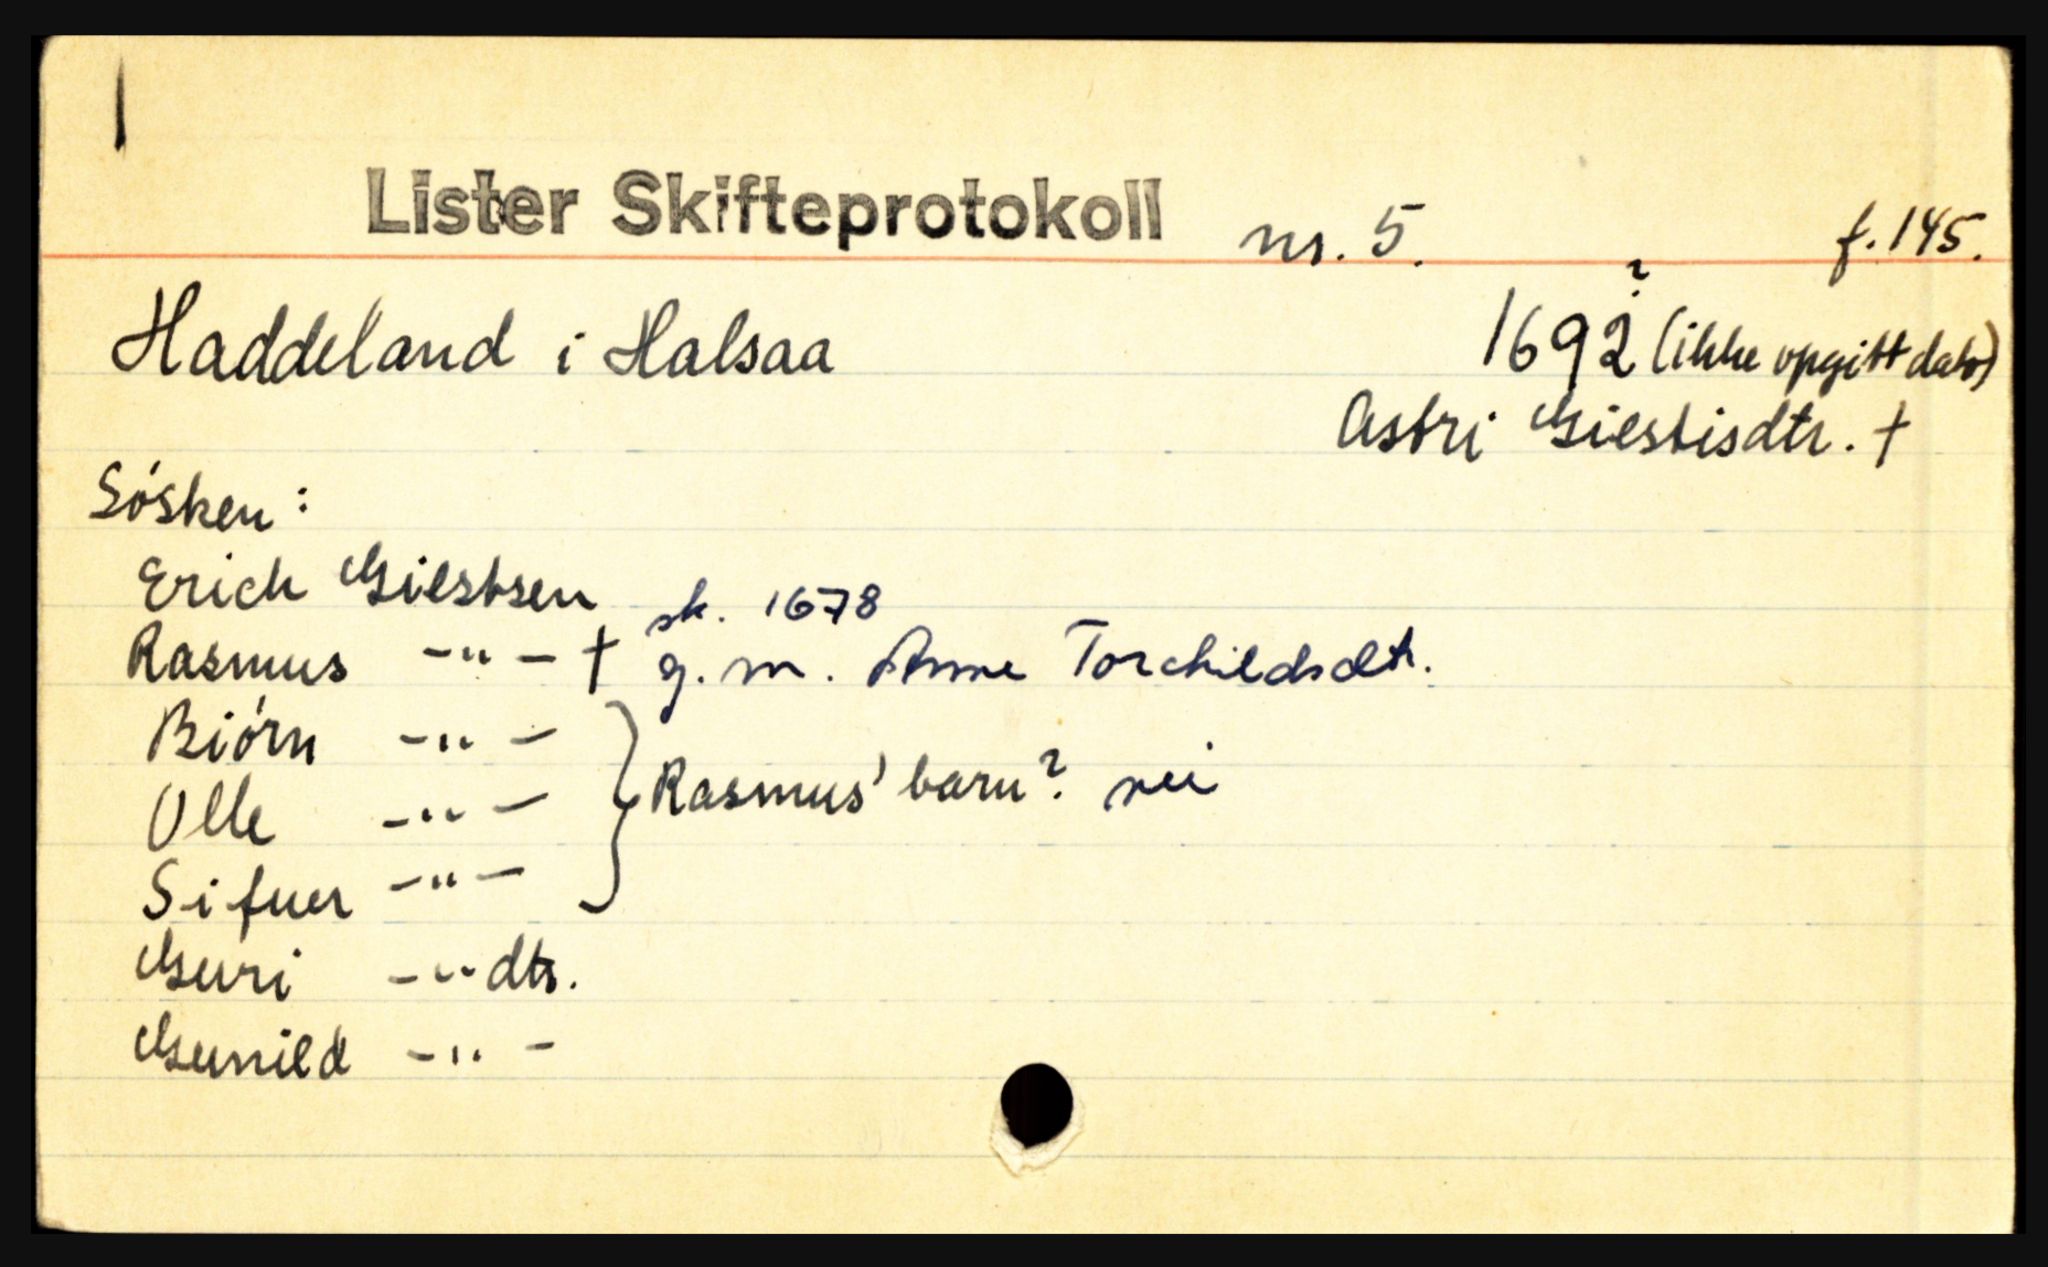 Lister Skifteprotokoll nr. 5. f. 145.
Haddeland i Halsaa 1692? (ikke opgitt dato)
Astri Giestisdtr. †
Sósken:
Erich Giestsen
Rasmus -"- † sk. 1678 g. m. Anne Torchildsdtr.
Biórn -"-
Olle -"- } Rasmus' barn? nei
Sifuer -"-
Guri -"- dtr.
Gunild -"-